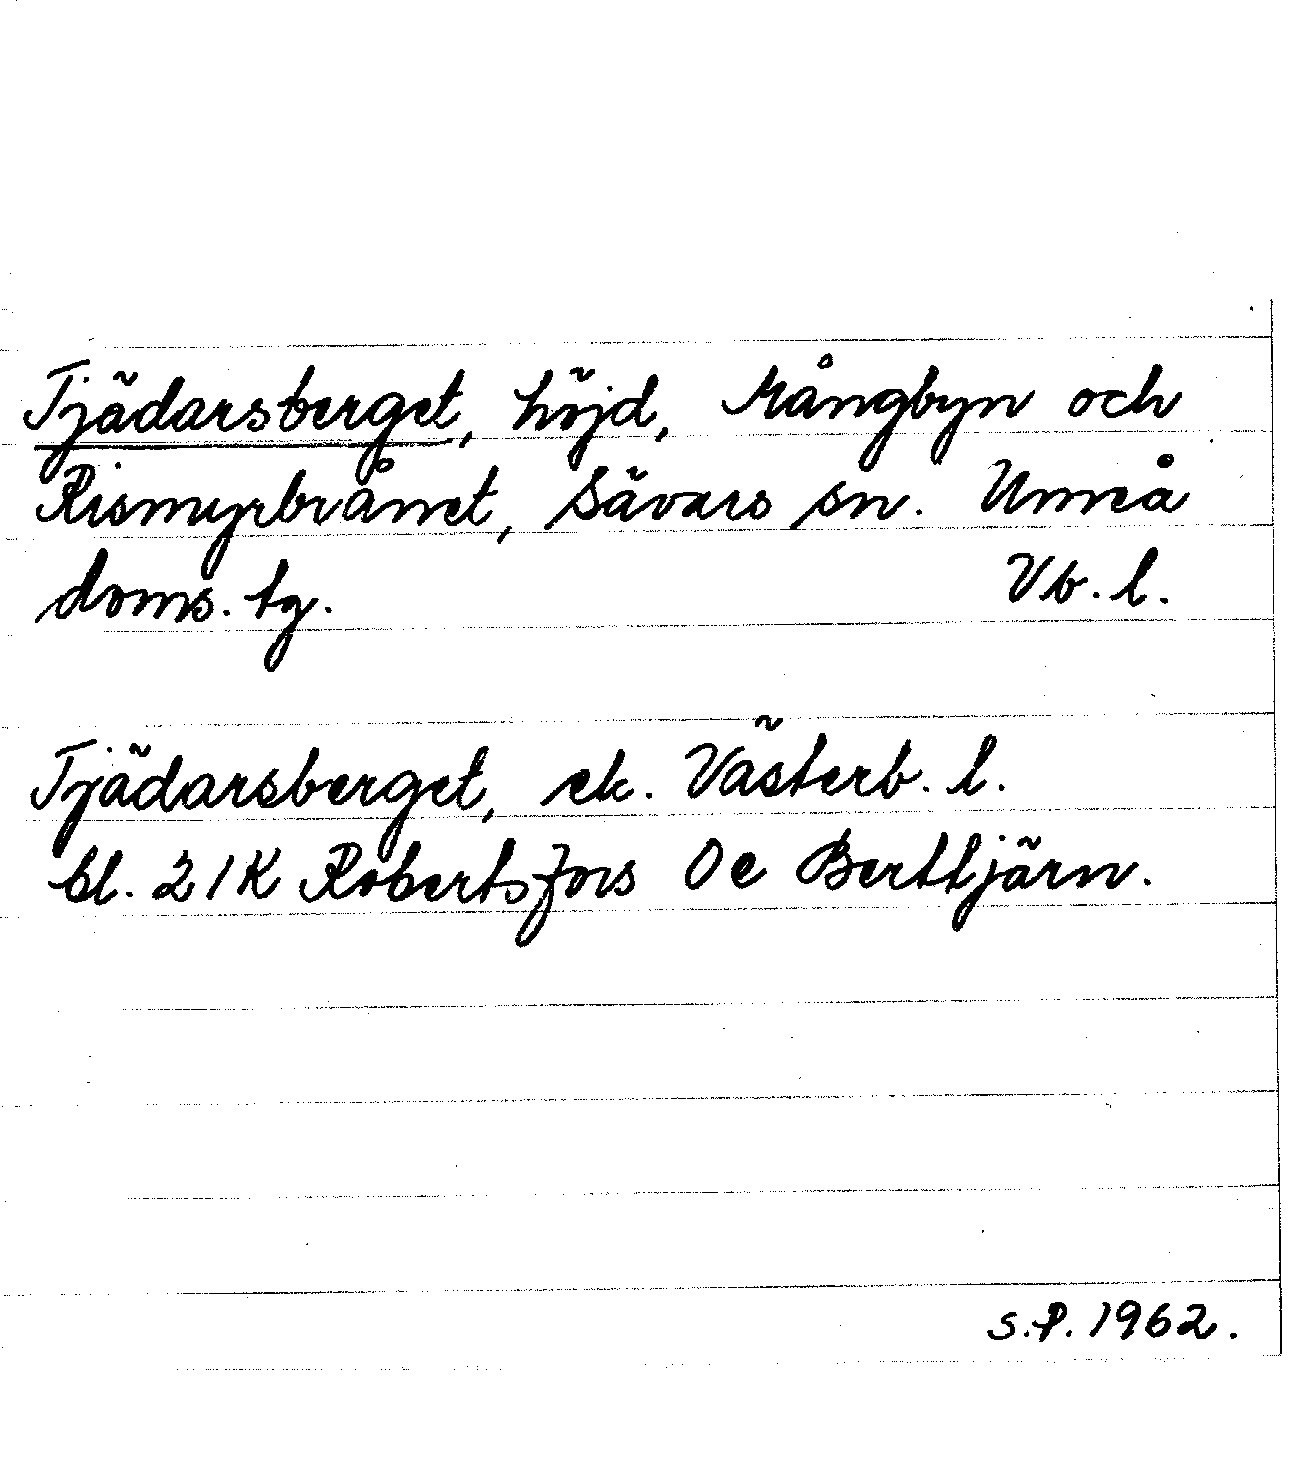 Tjädarsberget, höjd, Mångbyn och
Rismyrbrånet, Sävars sn. Umeå
doms. tg. Vb. l.
Tjädarsberget, ek. Västerb. l.
bl. 21K Robertsfors 0e Berttjärn.
S.P. 1962.